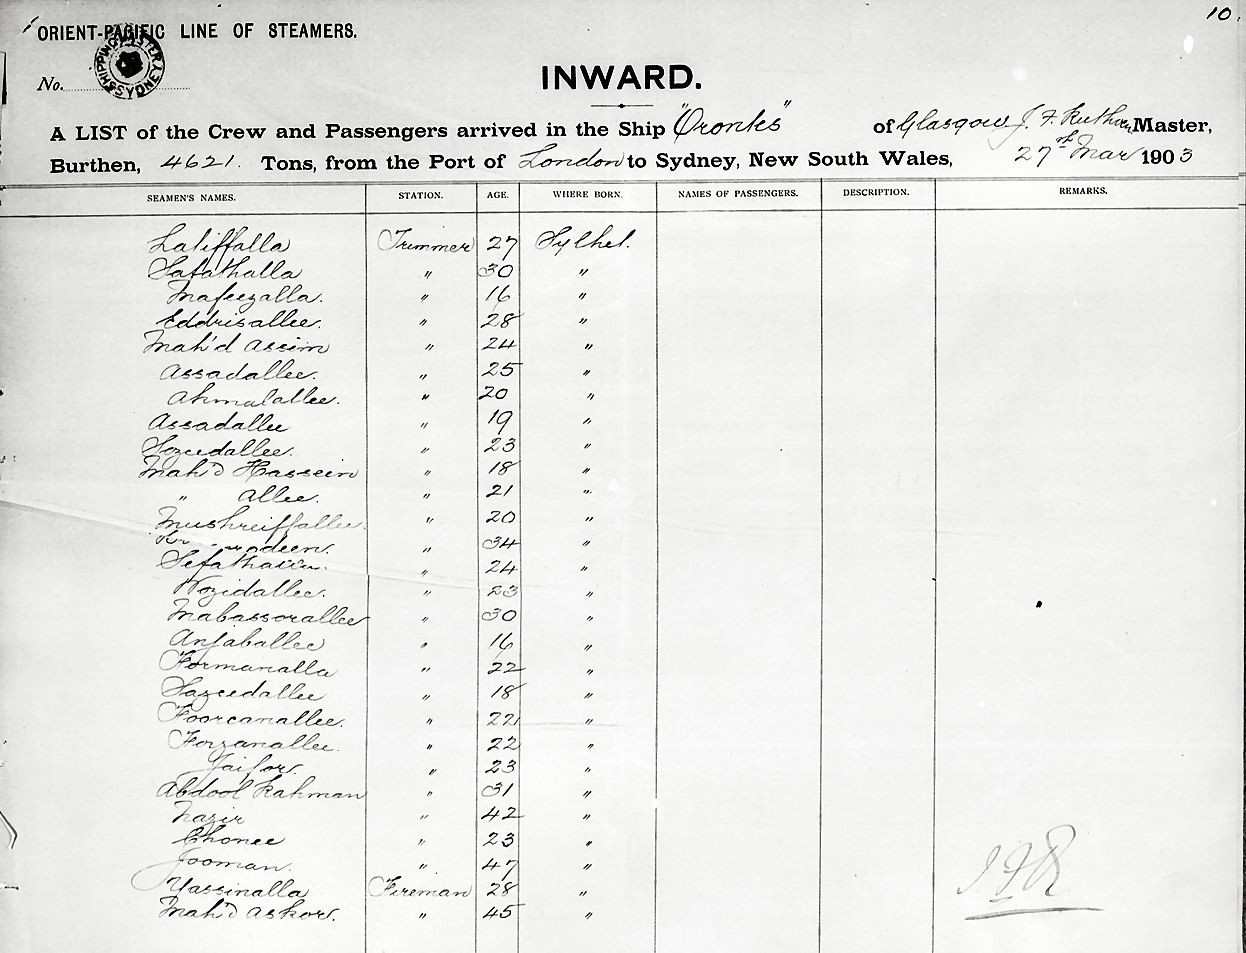 10.
ORIENT-PACIFIC LINE OF STEAMERS.
SHIPPING MASTER SYDNEY
No.
INWARD.
A LIST of the Crew and Passengers arrived in the Ship "Orontes" of Glasgow J. F. Ruthven Master,
Burthen, 4621. Tons, from the Port of London to Sydney, New South Wales, 27th Mar 1903
SEAMEN'S NAMES. STATION. AGE. WHERE BORN. NAMES OF PASSENGERS. DESCRIPTION. REMARKS.
Latiffalla Trimmer 27 Sylhet.
Safathalla " 30 "
Mafeezalla. " 16 "
Eddrisallee. " 28 "
Mah'd Assim " 24 "
Assadallee. " 25 "
Ahmadallee. " 20 "
Assadallee " 19 "
Sozudallee. " 23 "
Mah'd Hassein " 18 "
" Allee. " 21 "
Mushreiffallee. " 20 "
" 34 "
" 24 "
Wozidallee. " 23 "
Mabassorallee " 30 "
Anjaballee " 16 "
Formanalla " 22 "
Sazeedallee " 18 "
Foorcanallee. " 22 "
Forzanallee. " 22 "
Jaifor. " 23 "
Abdool Rahman " 31 "
Nazir " 42 "
Chonee " 23 "
Jooman. " 47 "
Yassinalla Fireman 28 "
Mah'd Askor. " 45 "
JFR